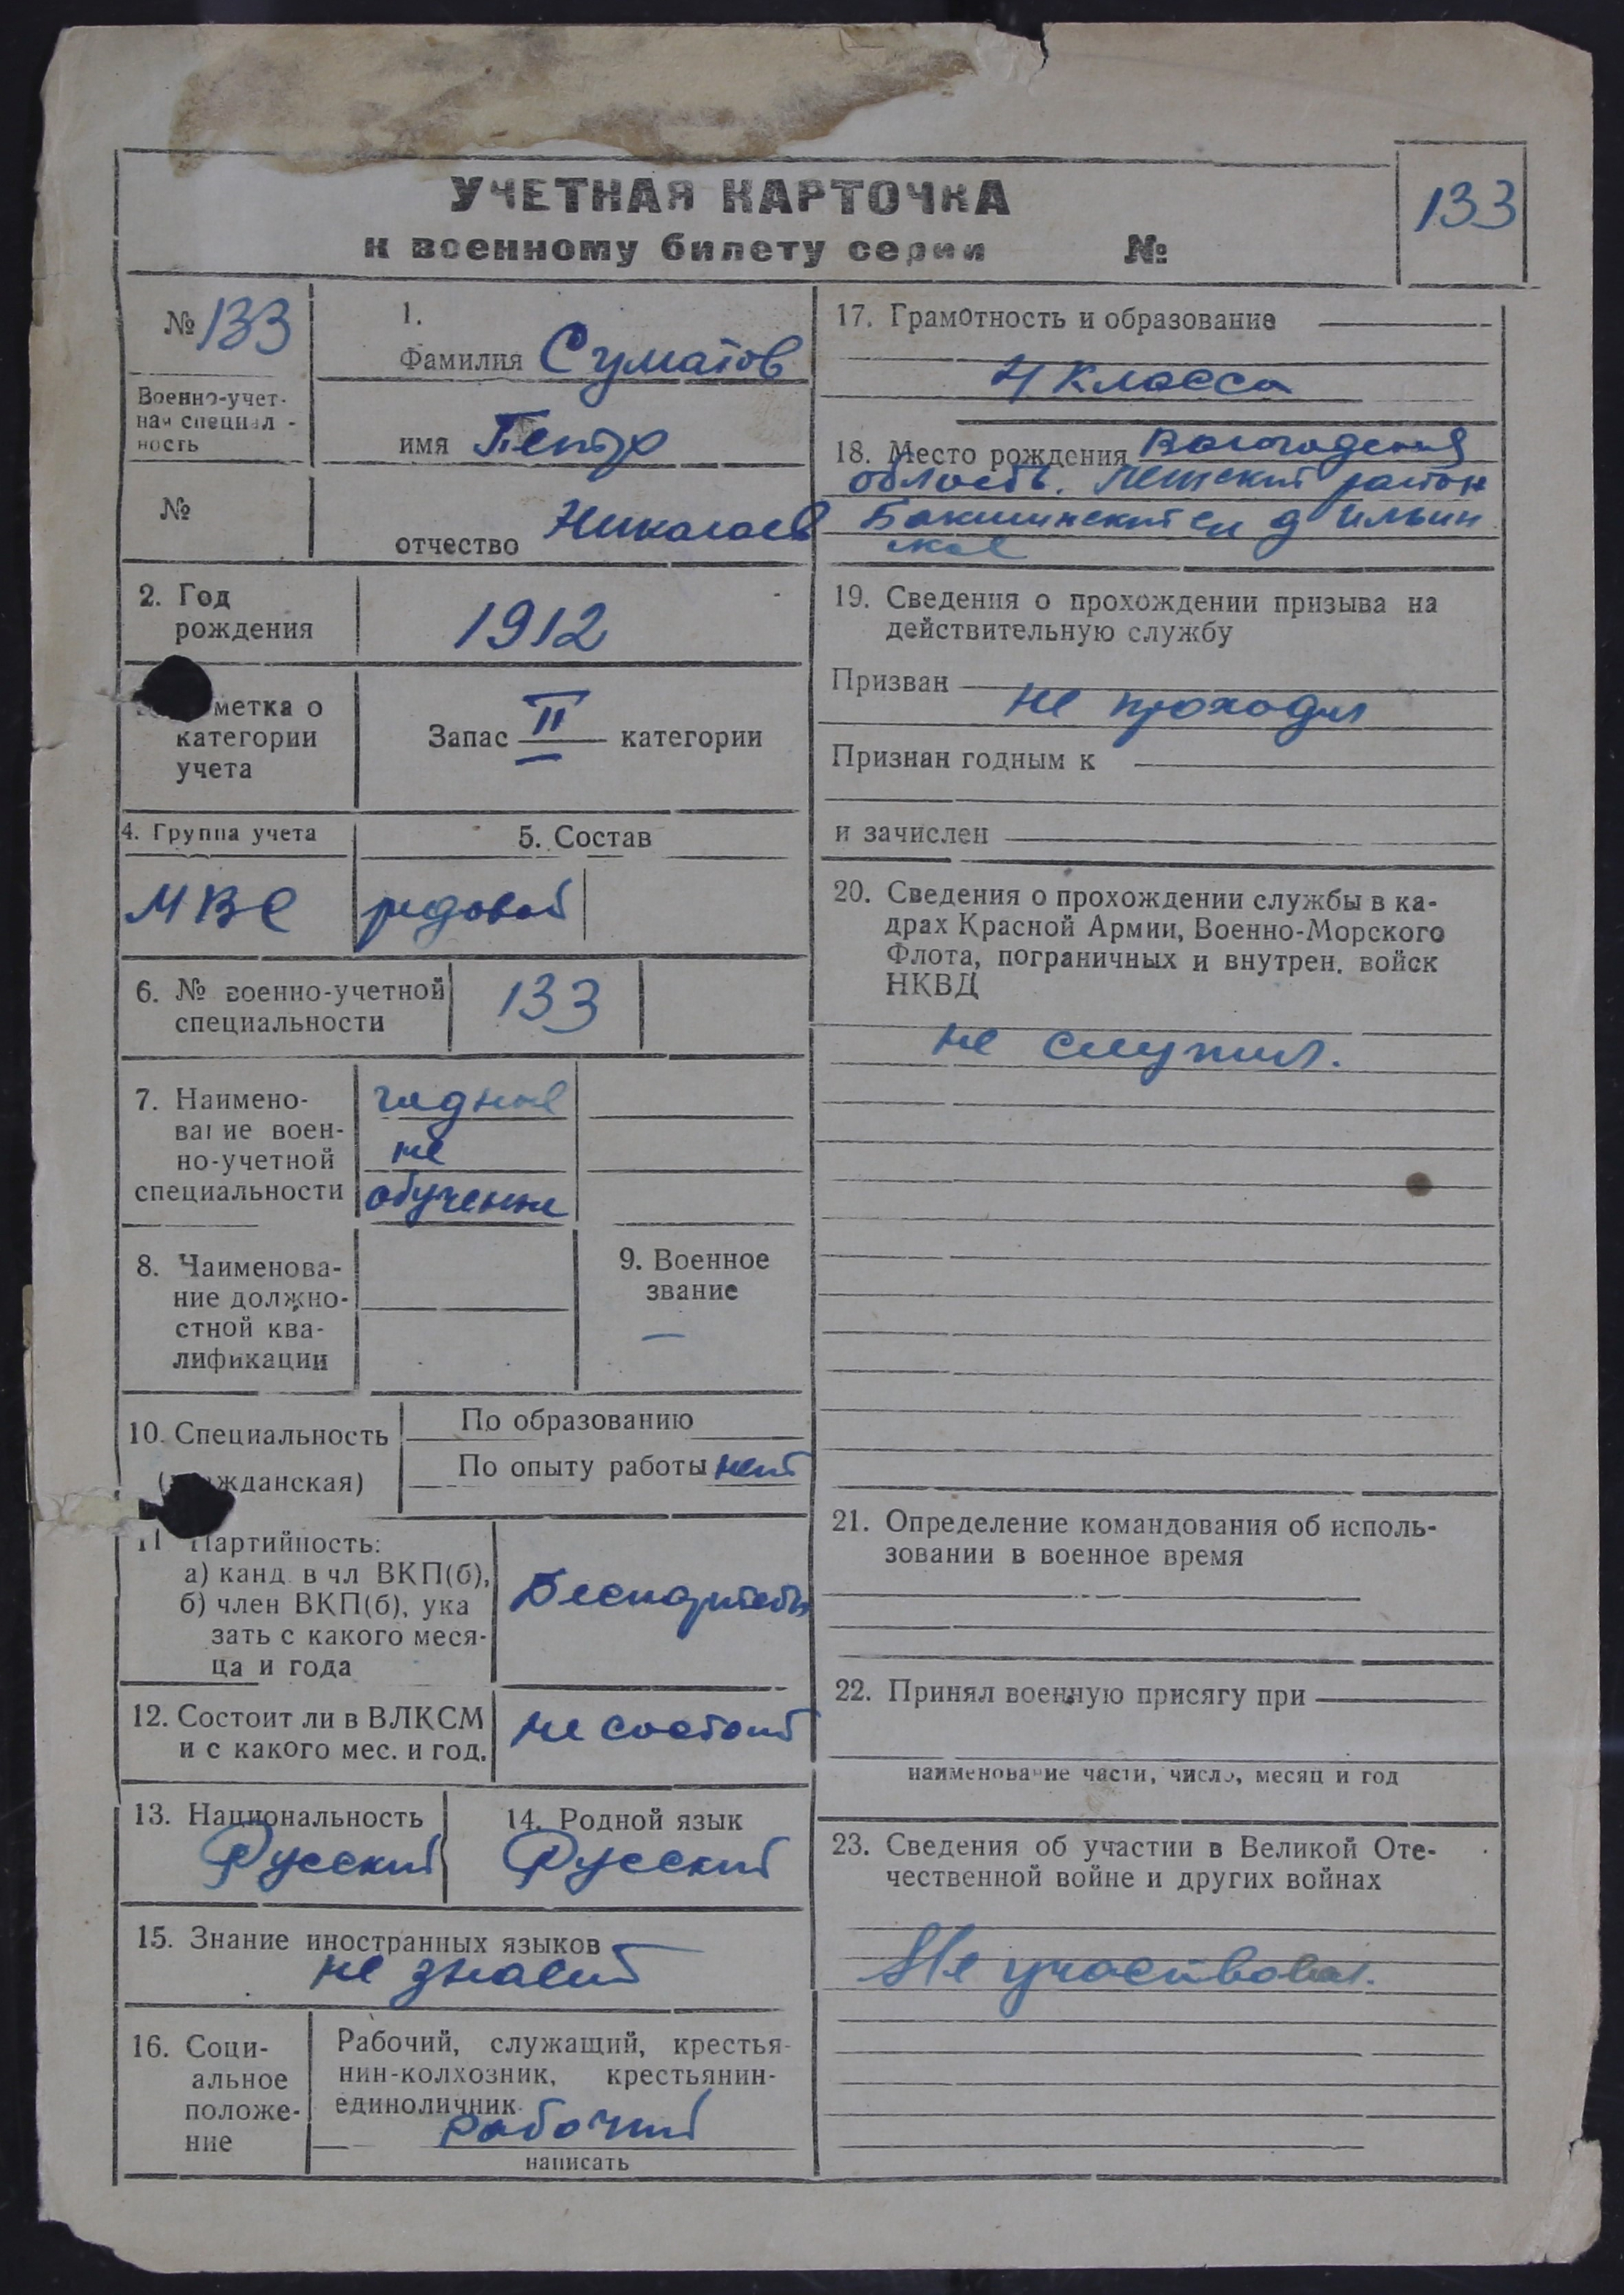 УЧЕТНАЯ КАРТОЧКА
к военному билету серии №
133
№ 133
Военно-учет-
ная специал -
ность
№
1.
Фамилия Суматов
имя Петр
отчество Николаев
2. Год
рождения
1912
метка о
категории
учета
Запас II категории
4. Группа учета
МВС
5. Состав
рядовой
6. № военно-учетной
специальности
133
7. Наимено-
вание воен-
но-учетной
специальности
годные
не
обученные
8. Наименова-
ние должно-
стной ква-
лификации
9. Военное
звание
—
10. Специальность
(гражданская)
По образованию
По опыту работы нет
11 Партийность:
а) канд. в чл ВКП(б),
б) член ВКП(б), ука
зать с какого меся-
ца и года
Беспартейн
12. Состоит ли в ВЛКСМ
и с какого мес. и год.
не состоит
13. Национальность
Русский
14. Родной язык
Русский
15. Знание иностранных языков
не знает
16. Соци-
альное
положе-
ние
Рабочий, служащий, крестья-
нин-колхозник, крестьянин-
единоличник.
рабочий
написать
17. Грамотность и образование
4 класса
18. Место рождения Вологодская
область. район
д Ильин
ское
19. Сведения о прохождении призыва на
действительную службу
Призван
не проходил
Признан годным к
и зачислен
20. Сведения о прохождении службы в ка-
драх Красной Армии, Военно-Морского
Флота, пограничных и внутрен. войск
НКВД
не служил.
21. Определение командования об исполь-
зовании в военное время
22. Принял военную присягу при
наименование части, число, месяц и год
23. Сведения об участии в Великой Оте-
чественной войне и других войнах
Не участвовал.